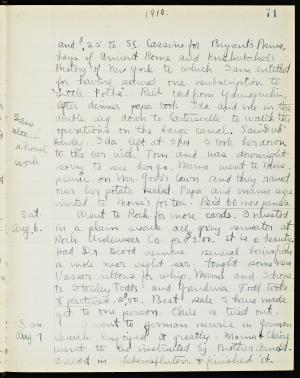 1910. 71
and $.25 to SE Cassino for Bryant's Poems,
Lays of Ancient Rome and Knickerbocker's
History of New York to which I am entitled
for having secured one subscription to
"Little Folks". Rec'd card from
After dinner papa took Ida and me in the
double rig down to Cartersville to watch the
operations on the barge canal. Saw
Ida left at 5 P.M. I took her down
to the car with Tom and was downright
sorry to see her go. Mama went to Miss.
picnic on Mrs. lawn and they raved
over her potato salad. Papa and mama were
invited to for tea. Rec'd 60 more cards.
Saw
steam
shovel
work
Sat.
Aug. 6.
Went to Roch for more cards. I invested
in a plain weave all gray sweater at
Roch. Underwear Co. for $3.00. It is a beauty
Had Dr. Blood remove several
a mole near right ear. Bought some new
Vassar ribbons for whip. Mama and I drove
to Stanley Todds and Grandma Todd took
8 pictures, $2.00. Best sale I have made
yet to one person. Claire is tired out.
Sun.
Aug. 7
I went to German service in German
church. Enjoyed it greatly. Mama + Claire
went to be instructed by Brother
I read in Lebensfluten + finished it.